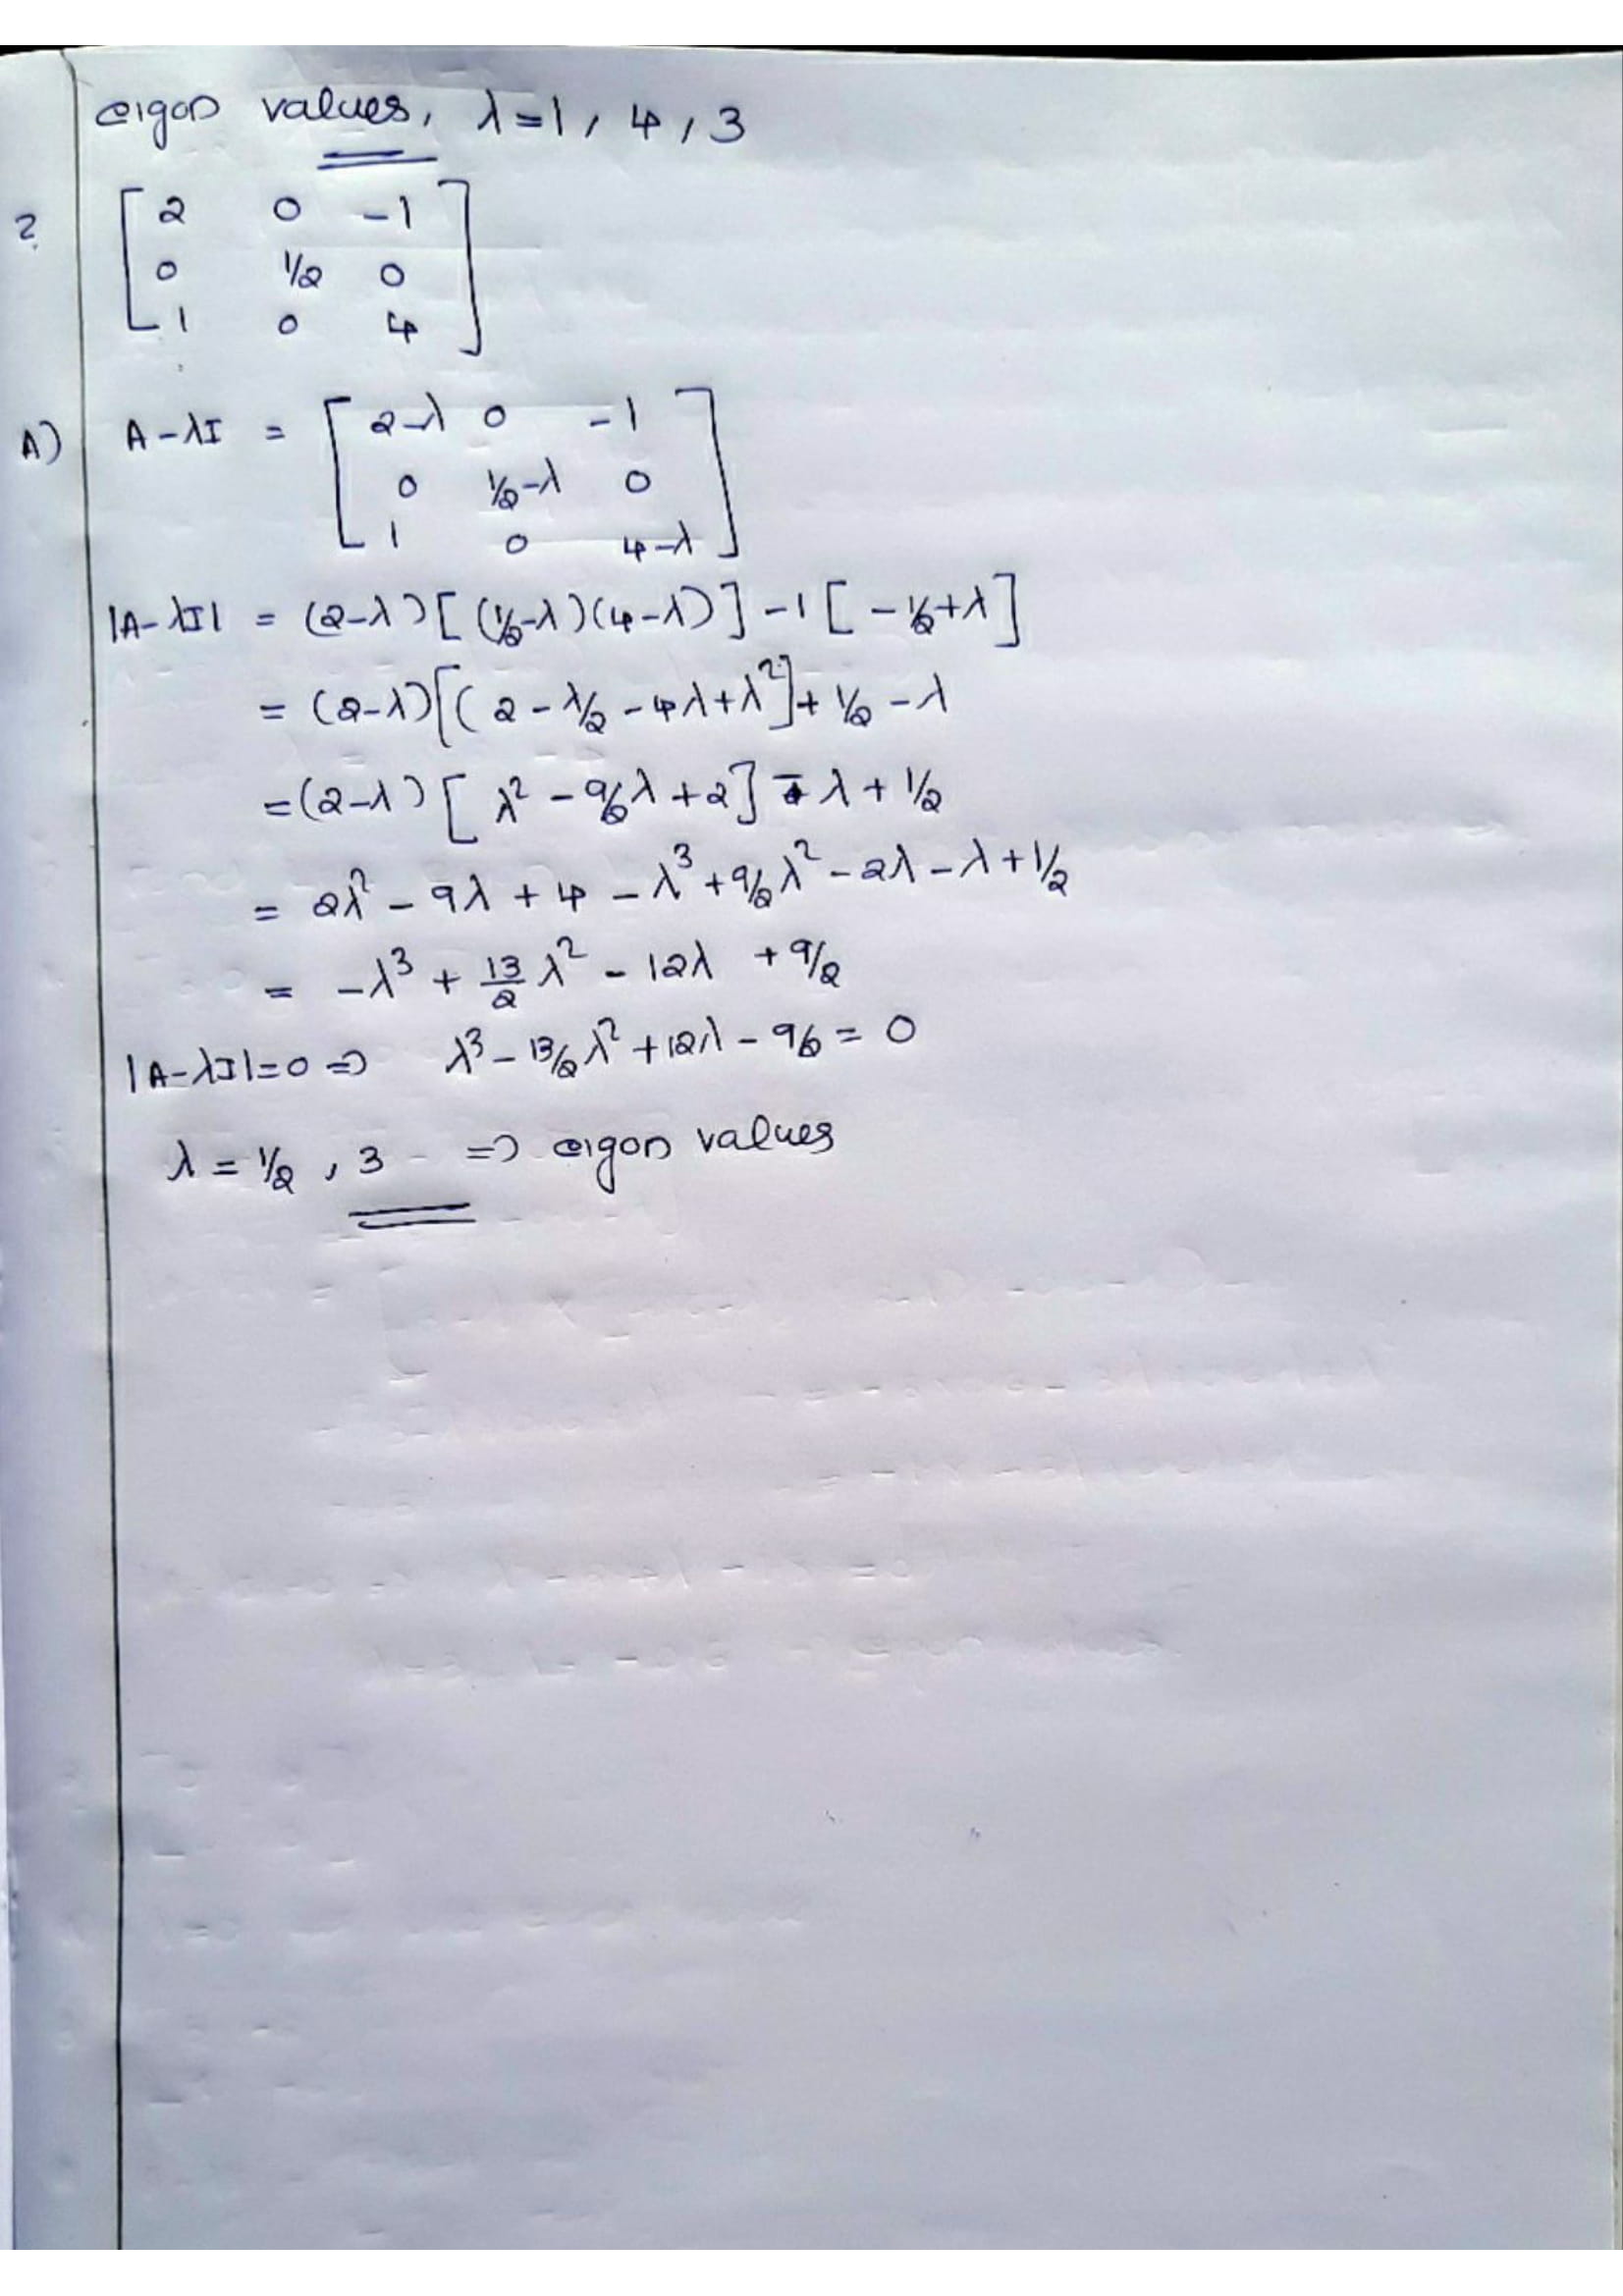 eigen values, λ=1, 4, 3
? [ 2 0 -1
0 1/2 0
1 0 4 ]
A) A-λI = [ 2-λ 0 -1
0 1/2-λ 0
1 0 4-λ ]
|A-λI| = (2-λ)[(1/2-λ)(4-λ)] -1[-1/2+λ]
= (2-λ)[(2-λ/2-4λ+λ²]+1/2-λ
=(2-λ)[λ²-9/2λ+2] - λ+1/2
= 2λ²-9λ+4-λ³+9/2λ²-2λ-λ+1/2
= -λ³+13/2λ²-12λ +9/2
|A-λI|=0 => λ³-13/2λ²+12λ-9/2=0
λ=1/2, 3 => eigen values